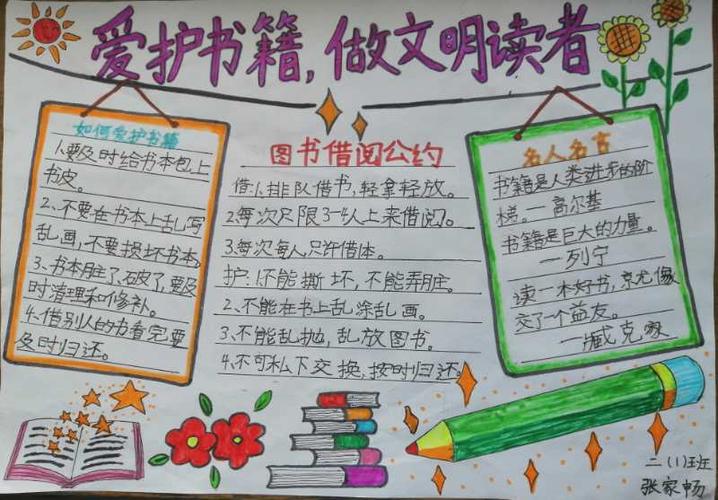 爱护书籍,做文明读者
如何爱护书籍
1.要及时给书本包上
书皮。
2、不要在书本上乱写
乱画,不要损坏书本。
3、书本脏了、破了,要及
时清理和修补。
4.借别人的书看完要
及时归还。
图书借阅公约
借:1、排队借书,轻拿轻放。
2.每次只限3-4人上来借阅。
3.每次每人只许借一本。
护:1.不能撕坏,不能弄脏。
2、不能在书上乱涂乱画。
3、不能乱抛,乱放图书。
4、不可私下交换,按时归还。
名人名言
书籍是人类进步的阶
梯。—高尔基
书籍是巨大的力量。
—列宁
读一本好书,就像
交了一个益友。
—臧克家
二(1)班
张家畅